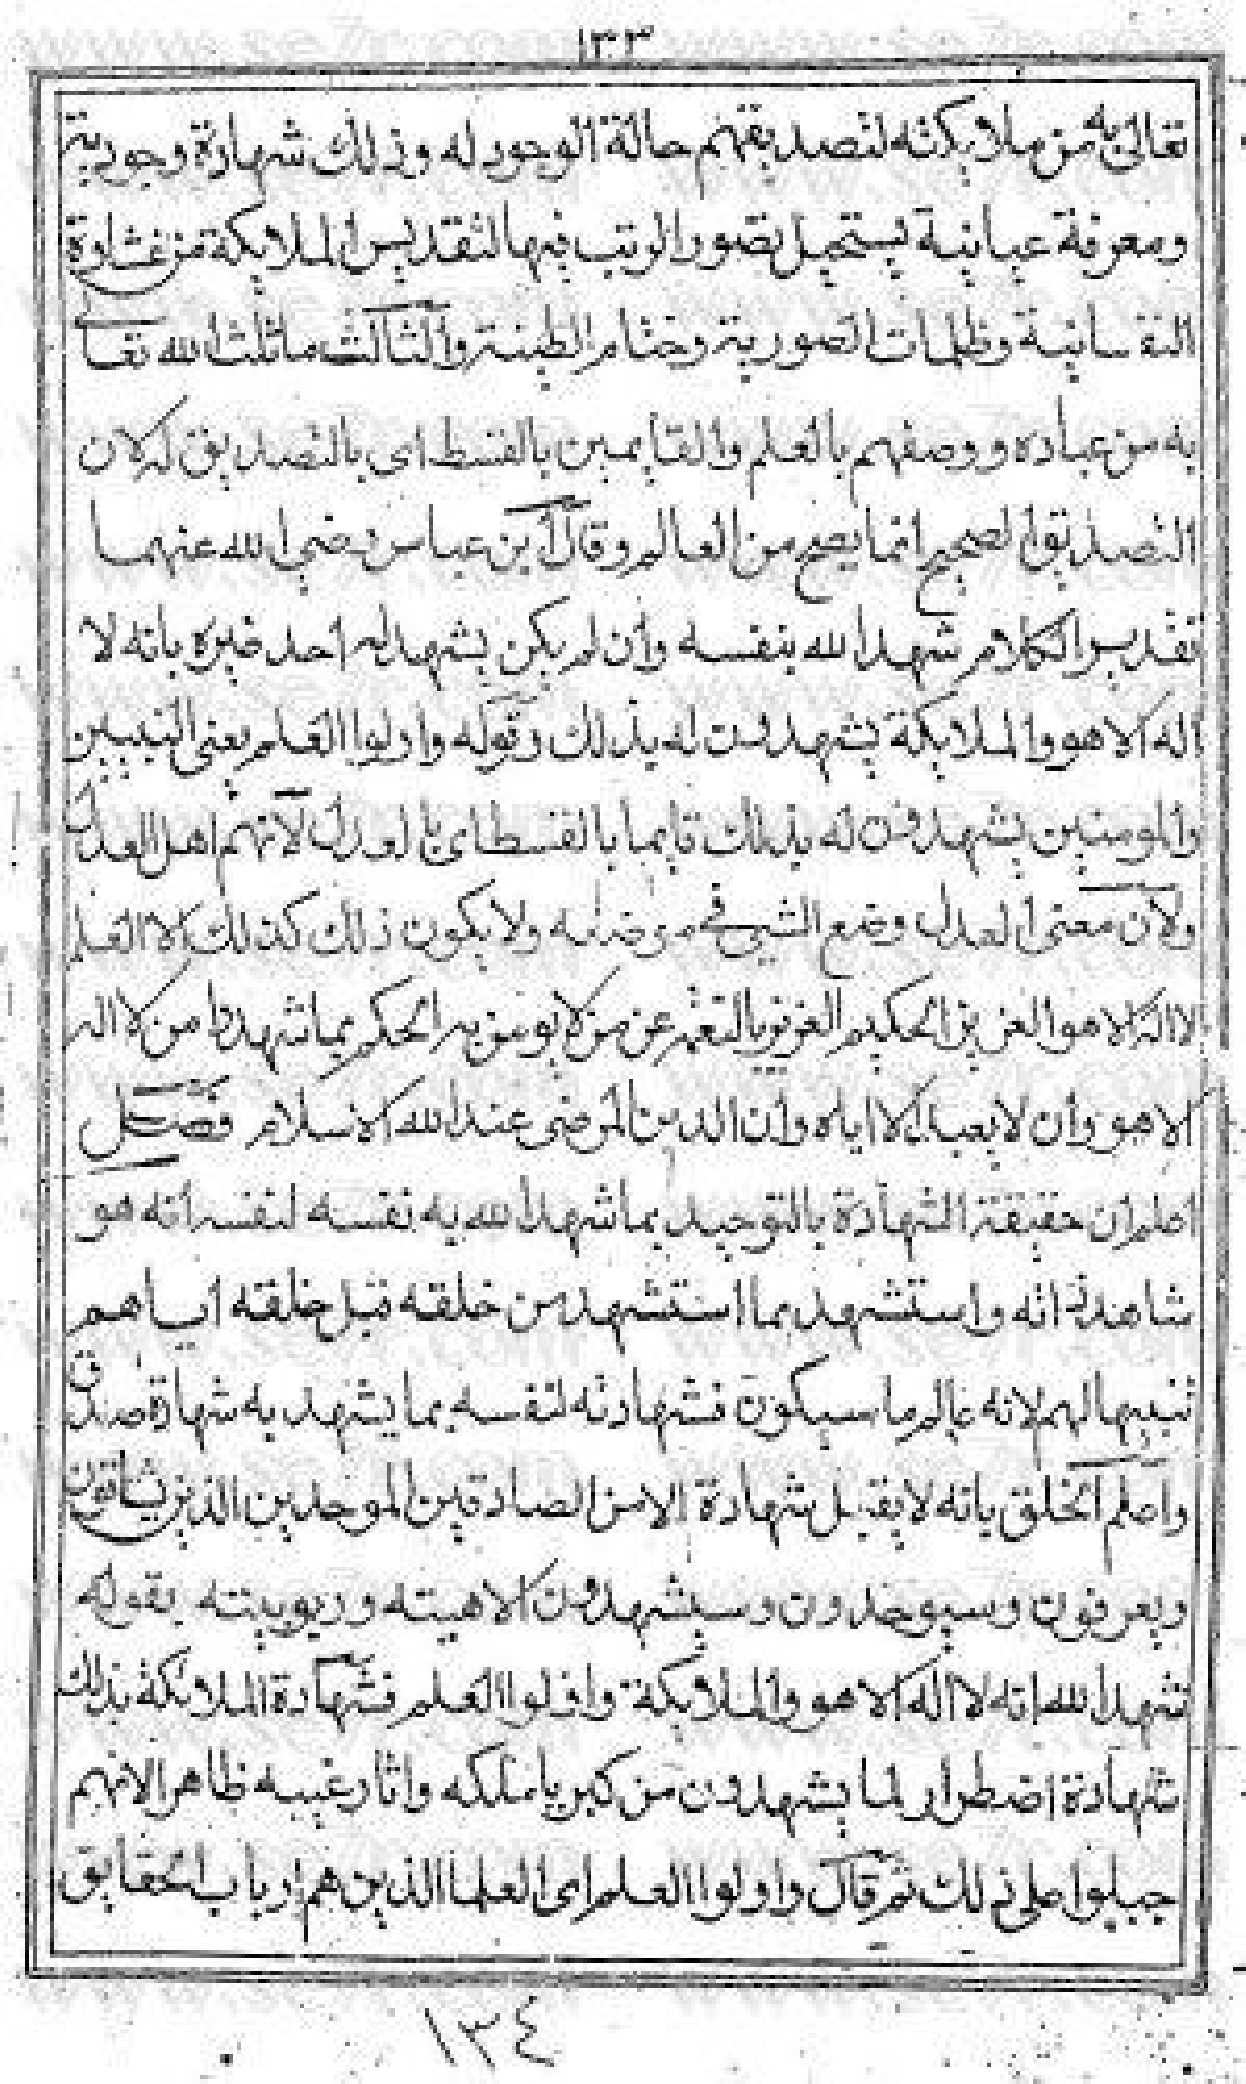 ١٣٣
تعالى به من ملايكته لتصديقهم حالة الوجود له وذلك شهادة وجودية
ومعرفة عيانية يستحيل تصور الريب فيها لتقديس الملايكة من غشاوة
النفسانية وظلمات الصورية وختام الطينة والثالث ما ثلث الله تعالى
به من عباده ووصفهم بالعلم والقايمين بالقسط اى بالتصديق له لان
التصديق الصحيح انما يصح من العالم وقال ابن عباس رضي الله عنهما
تقدير الكلام شهد الله بنفسه وان لم يكن يشهد له احد غيره بانه لا
اله الا هو والملايكة يشهدون له بذلك وقوله واولوا العلم يعنى النبيين
والمومنين يشهدون له بذلك قايما بالقسط اى بالعدل لانهم اهل العدل
ولان معنى العدل وضع الشيي في موضعه ولا يكون ذلك كذلك الا العلم
لا اله الا هو العزيز الحكيم العزيز بالنقم عن من لا يومن به الحكم بما شهدوا من لا اله
الا هو وان لا يعبد الا اياه وان الدين المرضى عند الله الاسلام فصل
اعلم ان حقيقة الشهادة بالتوحيد بما شهد الله به نفسه لنفسه انه هو
شاهد ذاته واستشهد بما استشهد من خلقه قبل خلقه اياهم
تنبيها لهم لانه عالم ما سيكون فشهادته لنفسه بما يشهد به شهادة صدق
واعلم الخلق بانه لا يقبل شهادة الا من الصادقين الموحدين الذين
ويعرفون وسيوحدون وسيشهدون الاهيته وربوبيته بقوله
شهد الله انه لا اله الا هو والملايكة واولوا العلم فشهادة الملايكة بذلك
شهادة اضطرار لما يشهدون من كبريا ملكه واثار غيبه ظاهر الانهم
جبلوا على ذلك ثم قال واولوا العلم اى العلما الذين هم ارباب الحقايق
١٣٤